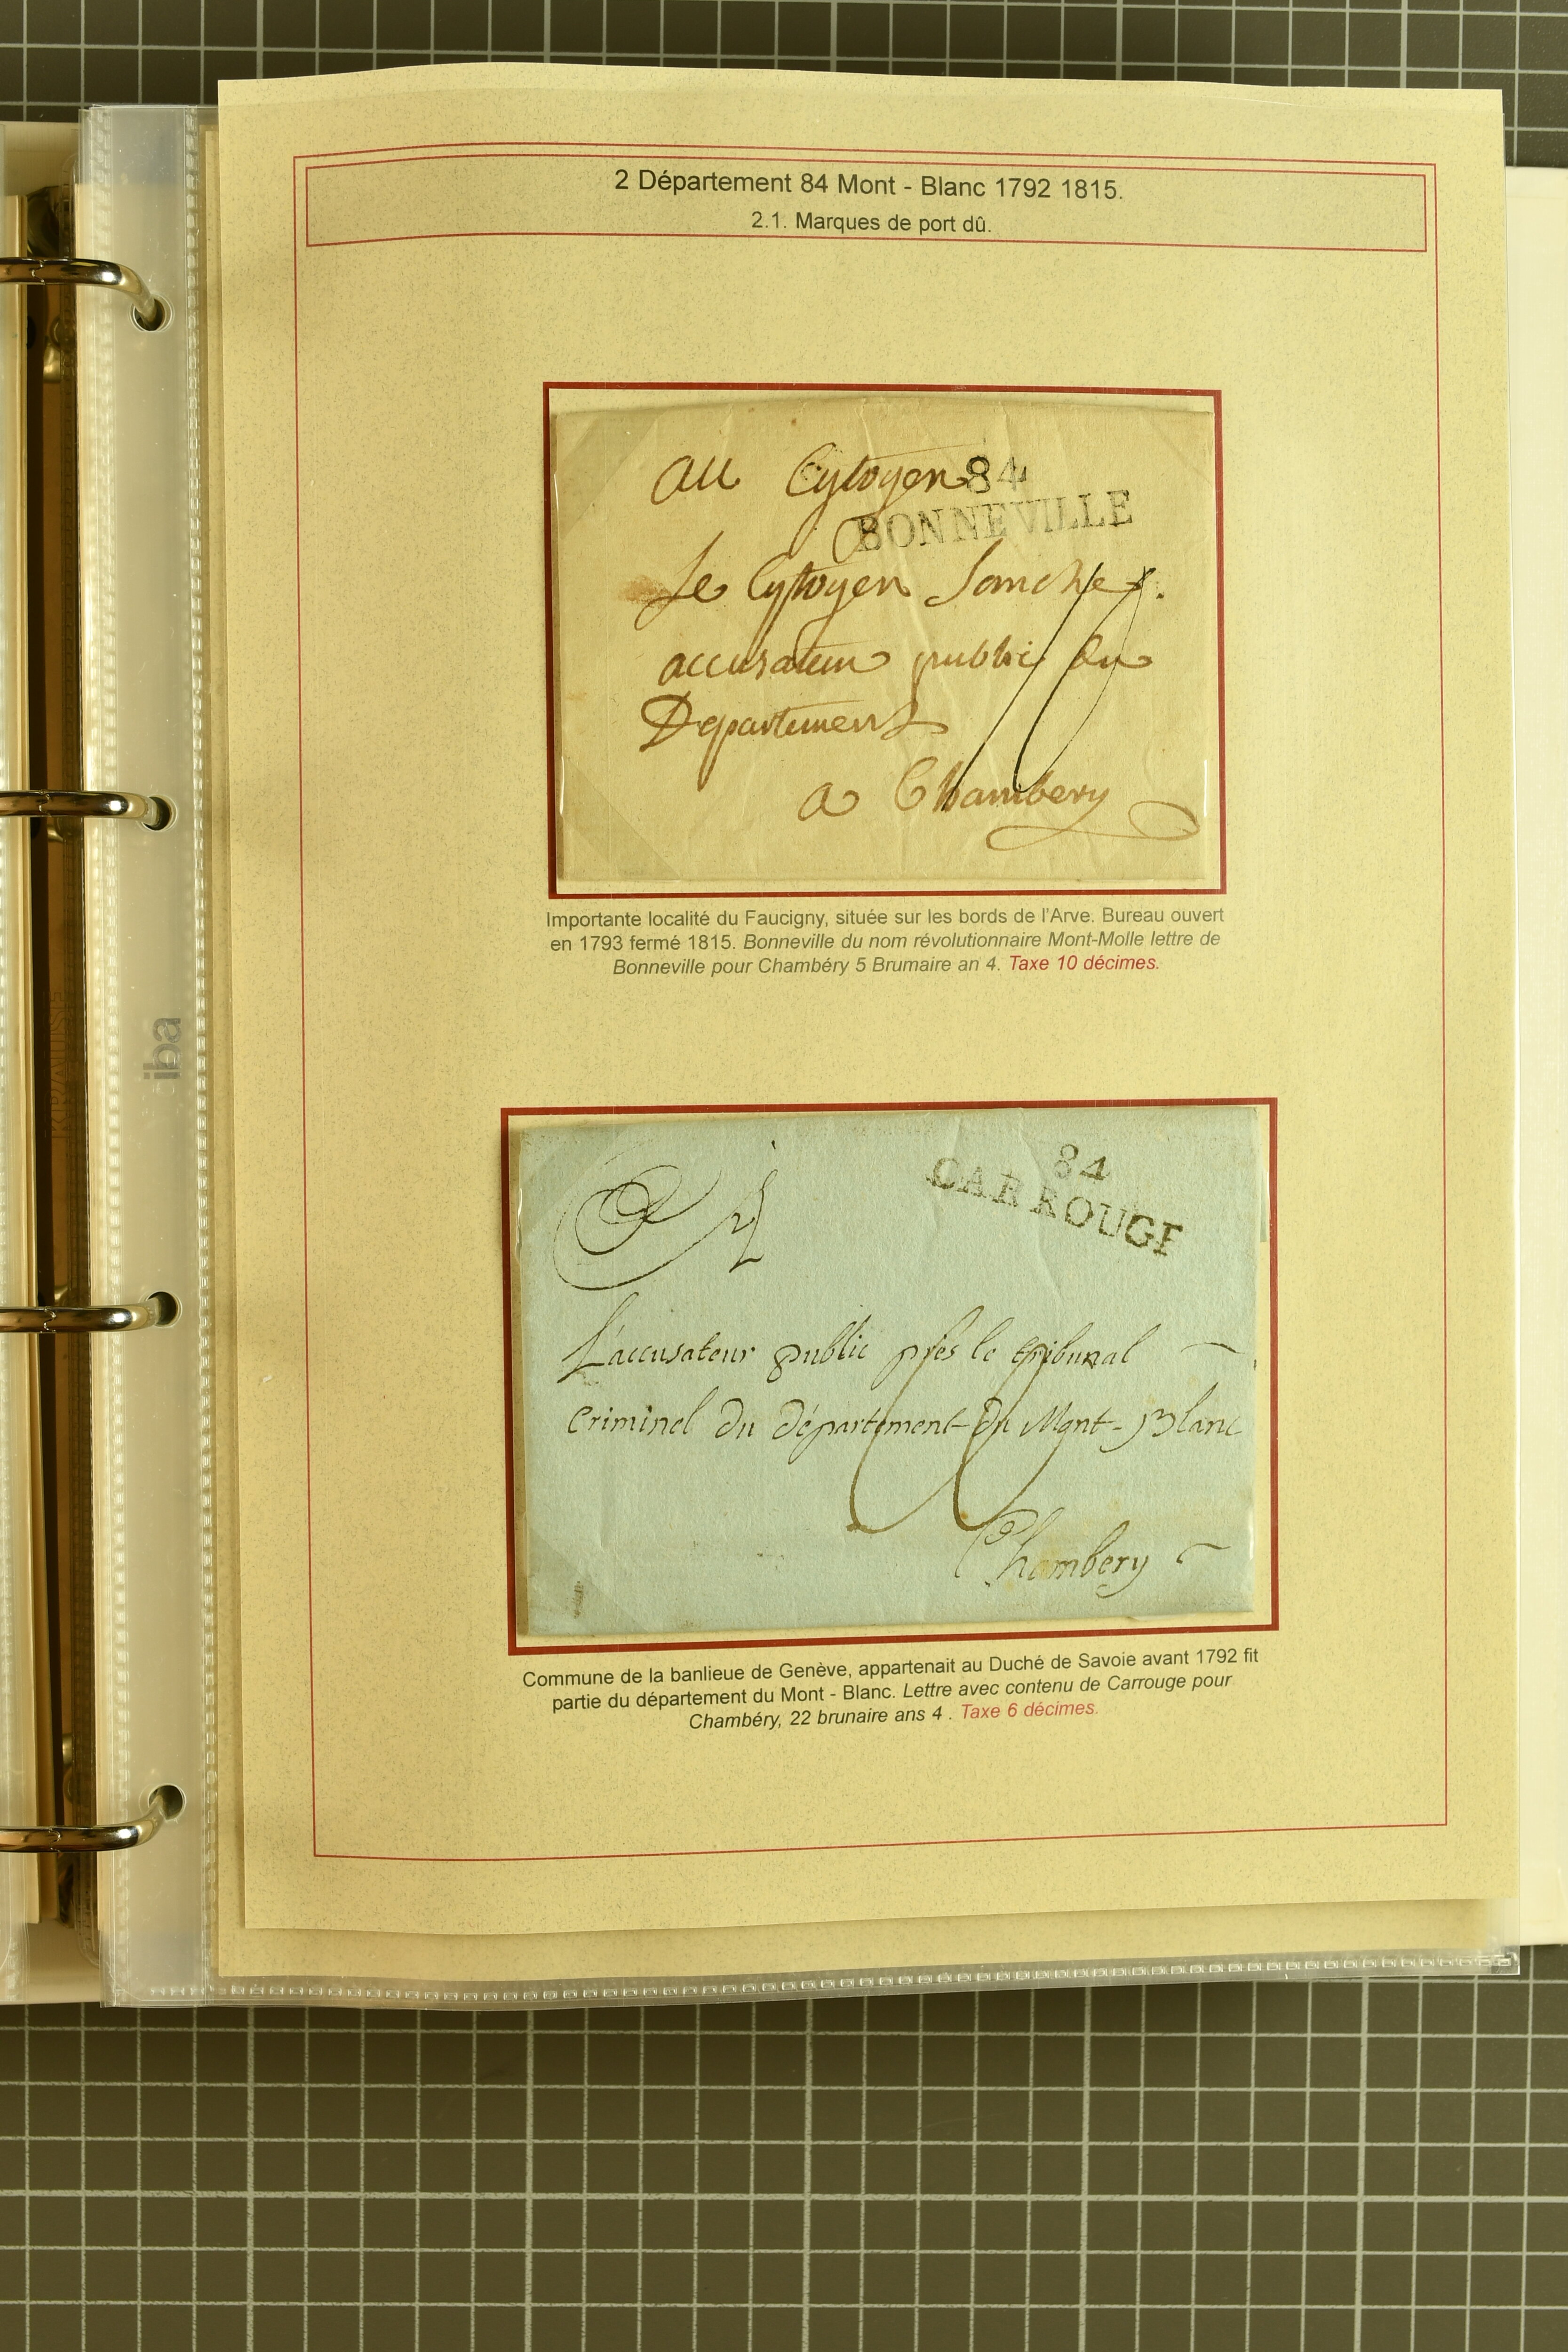 2 Département 84 Mont - Blanc 1792 1815.
2.1. Marques de port dû.
au Cytoyen 84
BONNEVILLE
Le Cytoyen
accusateur public du
Departement
a Chambery
10
Importante localité du Faucigny, située sur les bords de l'Arve. Bureau ouvert
en 1793 fermé 1815. Bonneville du nom révolutionnaire Mont-Molle lettre de
Bonneville pour Chambéry 5 Brumaire an 4. Taxe 10 décimes.
84
CARROUGE
L'accusateur public près le tribunal
Criminel du département du Mont-Blanc
Chambery
Commune de la banlieue de Genève, appartenait au Duché de Savoie avant 1792 fit
partie du département du Mont - Blanc. Lettre avec contenu de Carrouge pour
Chambéry, 22 brunaire ans 4 . Taxe 6 décimes.